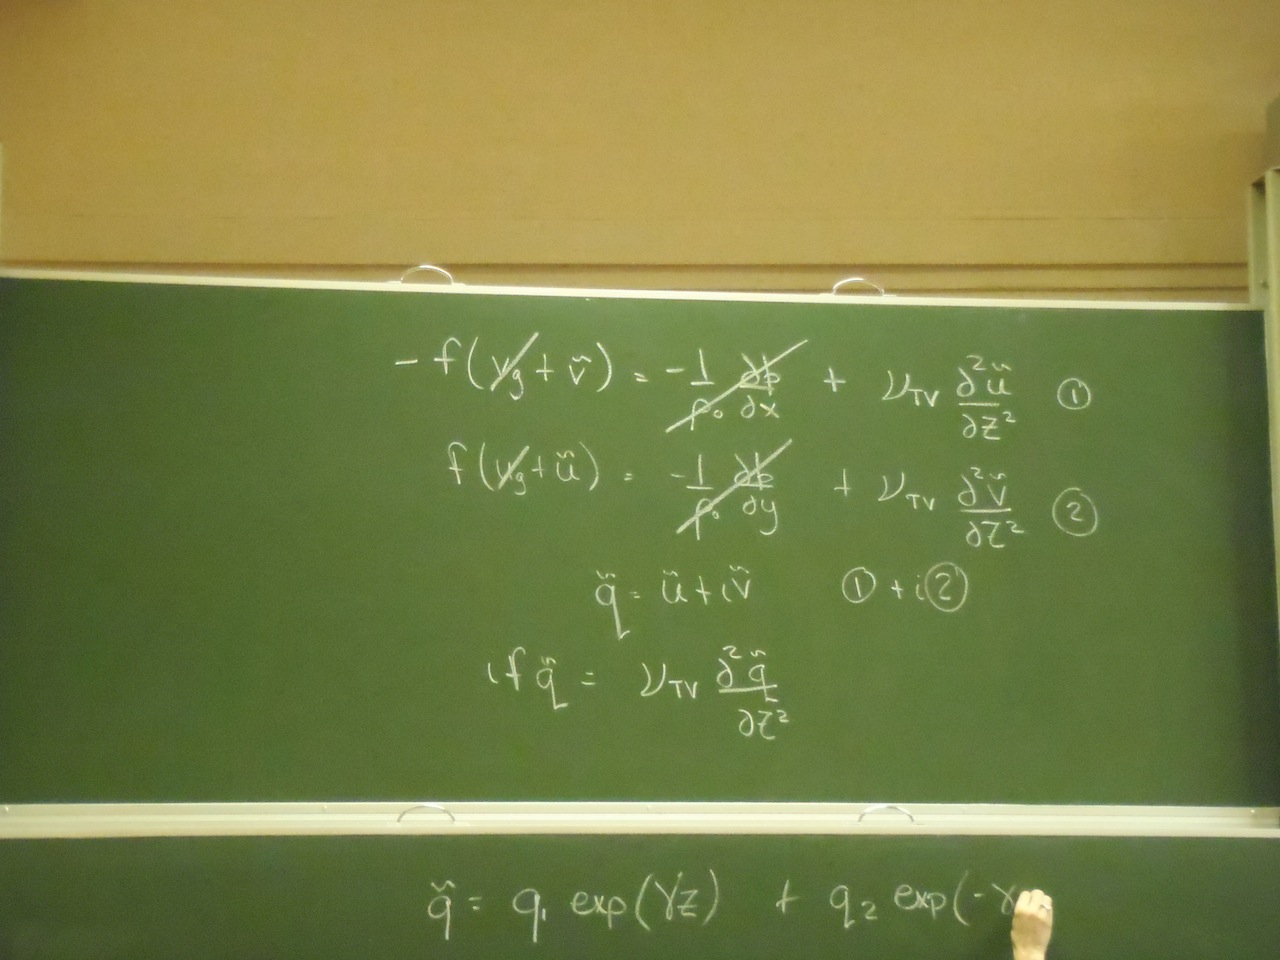 - f(v̶g̶ + ṽ) = -1/ρ₀ ∂p/∂x + ν_TV ∂²ũ/∂z² ①
f(u̶g̶ + ũ) = -1/ρ₀ ∂p/∂y + ν_TV ∂²ṽ/∂z² ②
q̃ = ũ + iṽ ① + i②
if q̃ = ν_TV ∂²q̃/∂z²
q̃ = q₁ exp(γz) + q₂ exp(-γ